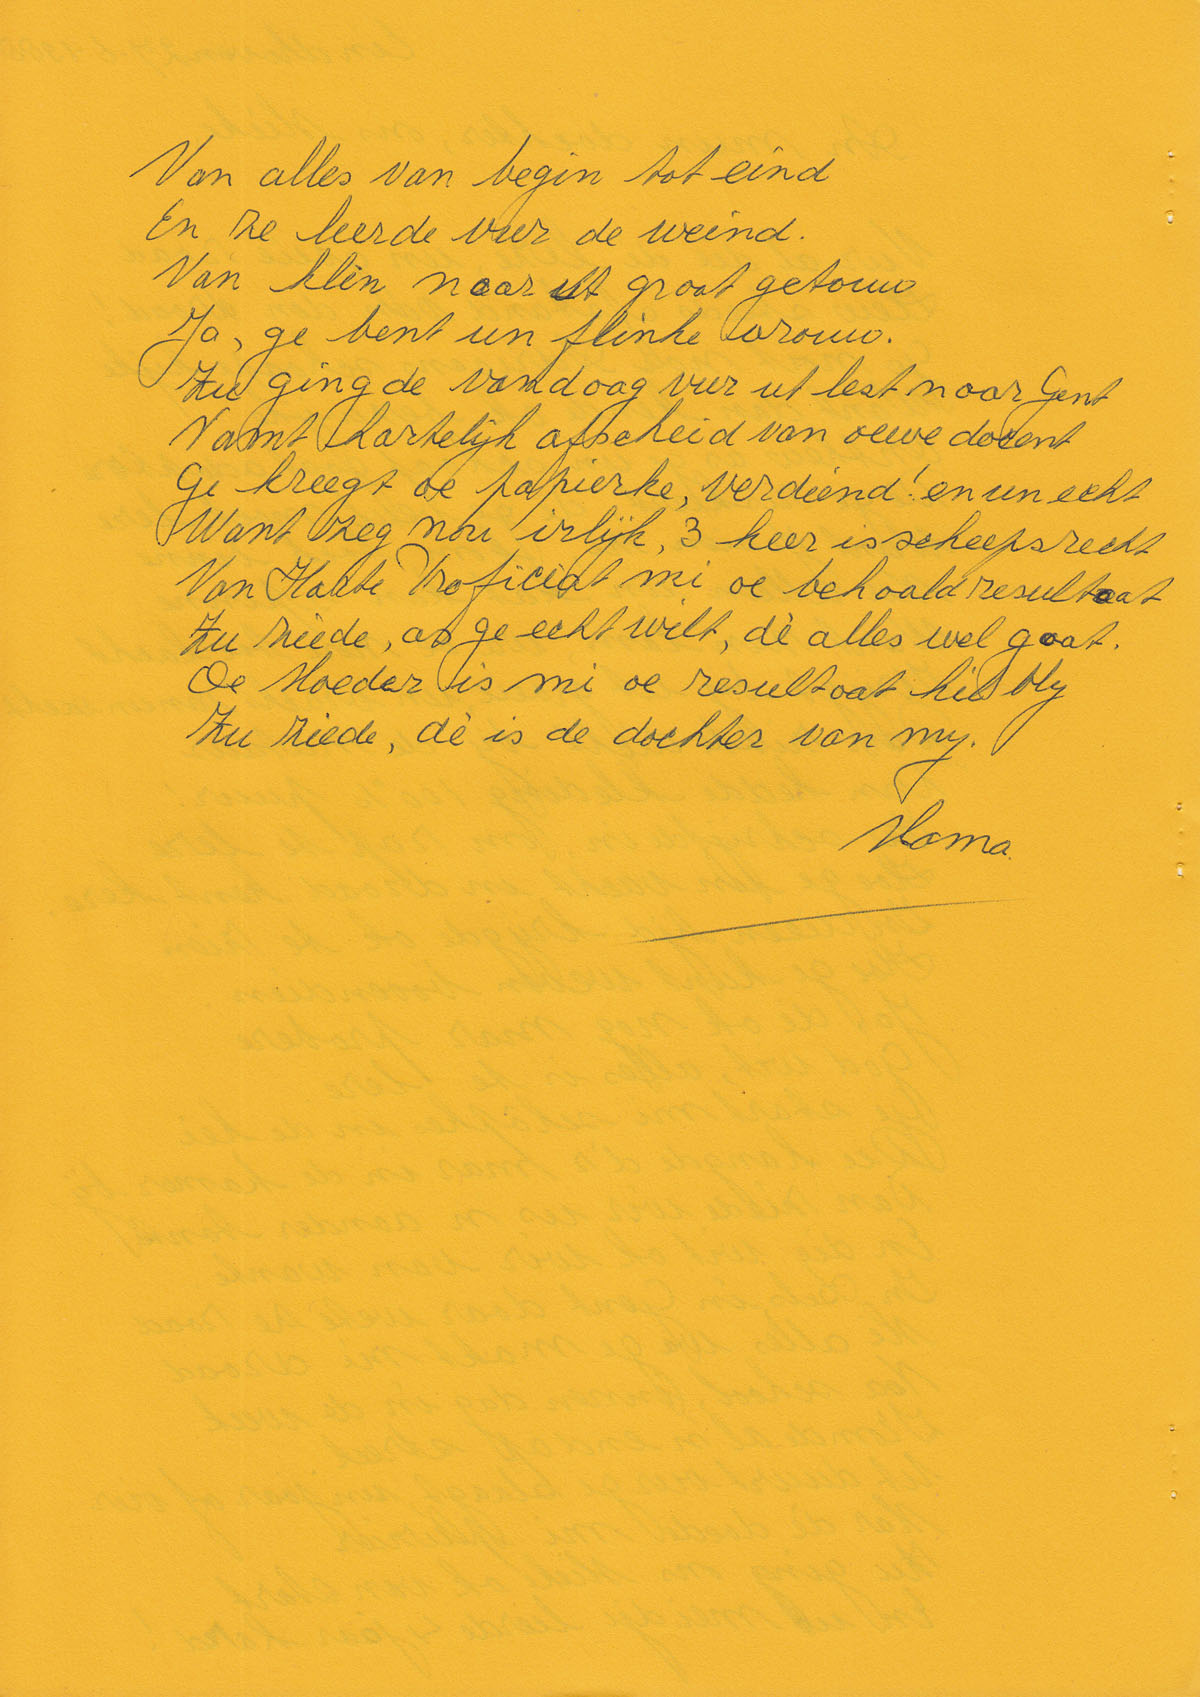 Van alles van begin tot eind
En ze leerde vur de weind.
Van klèn naar ut groot getouw
Ja, ge bent un flinke vrouw.
Zu ging de vandaag vur ut lest naar Gent
Namt hartelijk afscheid van oewe docent
Ge kreegt oe papierke, verdiend! en un echt
Want zeg nou irlijk, 3 keer is scheepsrecht
Van Harte Proficiat mi oe behaald resultaat
Zu ziede, as ge echt wilt, dè alles wel goat.
Oe Moeder is mi oe resultaat hil bly
Zu ziede, dè is de dochter van my.
Mama.